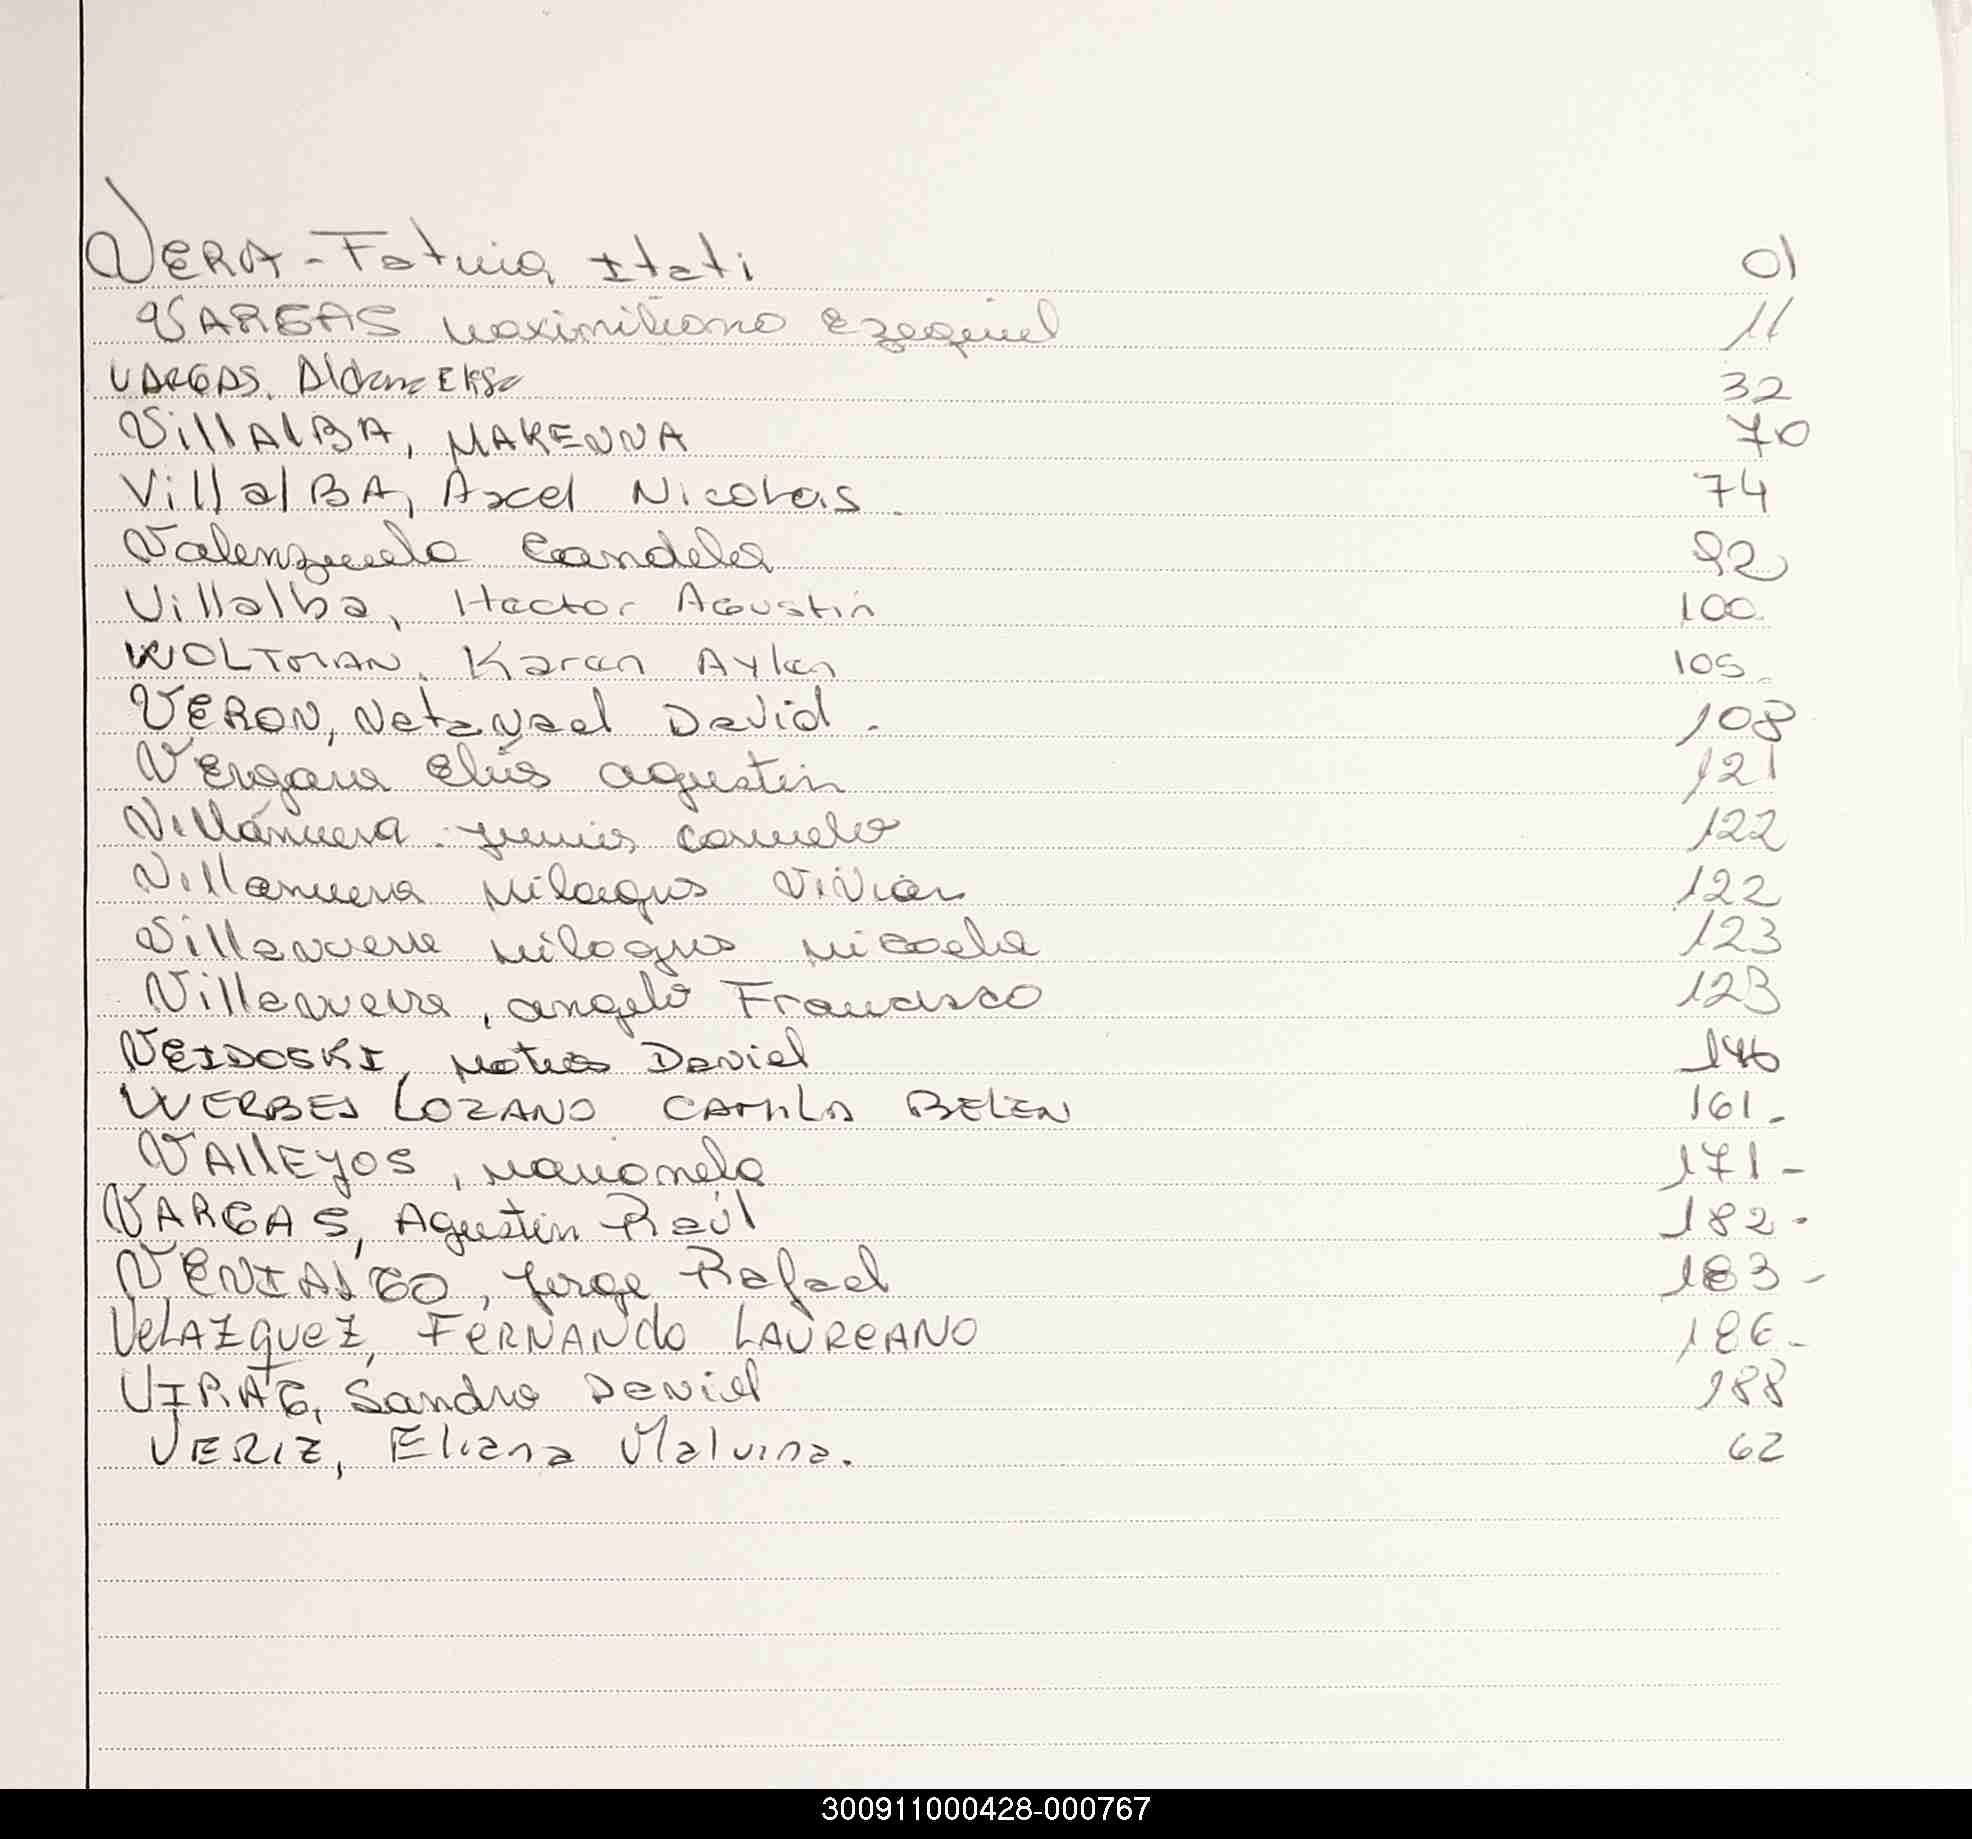 VERA - Fatima Itati 01
VARGAS Maximiliano Ezequiel 11
VARGAS, Aldana Elisa 32
VillAlBA, MAKENNA 70
VillalBA, Axel Nicolas. 74
Valenzuela Candela 92
Villalba, Hector Agustin 100.
WOLTMAN, Karen Aylen 105.
VERON, Natanael David. 108
VErgara Elías agustin 121
Villánueva Junis Camelo 122
Villanueva Milagros ViVian 122
Villanueva Milagros Micaela 123
Villanueva, angelo Francisco 123
VEIDOSKI, Matias Daniel 146
WERBES LOZANO CAMILA BELEN 161.
VAllEyOS, Marianela 171-
VARGAS, Agustin Raúl 182.
VENIALGO, Jorge Rafael 183-
VeLAZqueZ, FeRNANdo LAUReANO 186-
VIRAG, Sandro Daniel 188
VERIZ, Eliana Malvina. 62
300911000428-000767